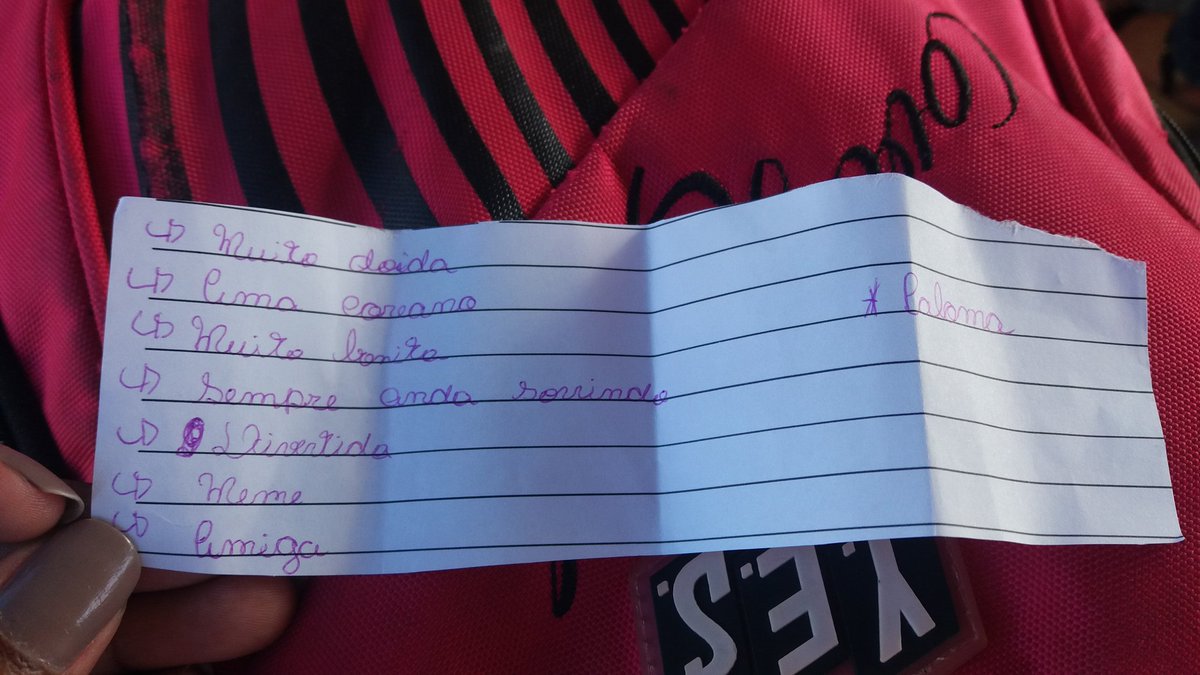 ↳ Muito doida
↳ Ama coreano
↳ Muito bonita
↳ Sempre anda sorrindo
↳ Divertida
↳ Meme
↳ Amiga
* Paloma
Y.E.S.